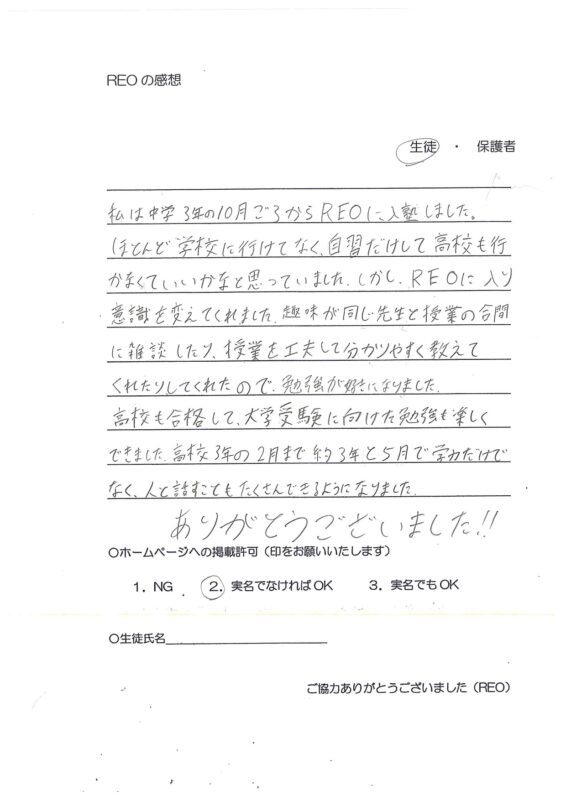 REOの感想
生徒 ・ 保護者
私は中学3年の10月ごろからREOに入塾しました。
ほとんど学校に行けてなく、自習だけして高校も行
かなくていいかなと思っていました。しかし、REOに入り
意識を変えてくれました。趣味が同じ先生と授業の合間
に雑談したり、授業を工夫して分かりやすく教えて
くれたりしてくれたので、勉強が好きになりました。
高校も合格して、大学受験に向けた勉強も楽しく
できました。高校3年の2月まで約3年と5月で学力だけで
なく、人と話すこともたくさんできるようになりました。
ありがとうございました!!
○ホームページへの掲載許可（印をお願いいたします）
1．NG 2．実名でなければOK 3．実名でもOK
○生徒氏名
ご協力ありがとうございました（REO）